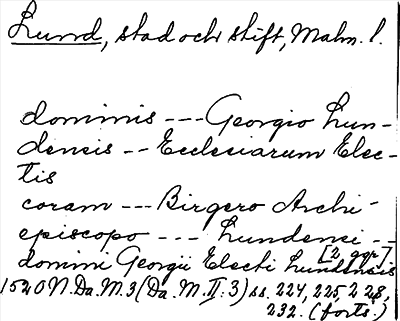 Lund, stad och stift, Malm. l.
dominis --- Georgio Lun-
densis -- Ecclesiarum Elec-
tis
coram --- Birgero Archi-
episcopo --- Lundensi --
[2 ggr].
domini Georgii Electi Lundensis
1520 N. Da. M. 3 (Da. M. II: 3) ss. 224, 225, 228,
232. (forts.)